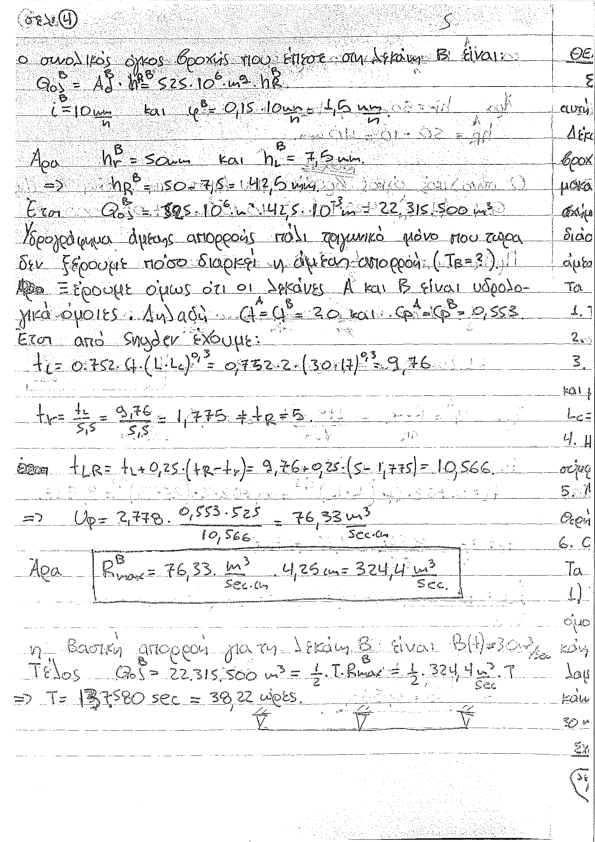 σελ. 4
5
ο συνολικός όγκος βροχής που έπεσε στη λεκάνη B είναι:
Qολ^B = Aδ^B · hR^B = 525·10^6·m²·hR^B
i^B = 10 mm/h και φ^B = 0,15·10 mm/h = 1,5 mm/h
Άρα hr^B = 50mm και hL^B = 7,5 mm.
=> hR^B = 50-7,5 = 42,5 mm.
Έτσι Qολ^B = 525·10^6·m²·42,5·10^-3 m = 22,315.500 m³
Υδρογράφημα άμεσης απορροής πάλι τριγωνικό μόνο που τώρα
δεν ξέρουμε πόσο διαρκεί η άμεση απορροή (TB=?).
Ξέρουμε όμως ότι οι λεκάνες A και B είναι υδρολο-
γικά όμοιες. Δηλαδή Ct^A = Ct^B = 2.0 και Cp^A = Cp^B = 0,553
Έτσι από Snyder έχουμε:
tL = 0.752·Ct·(L·Lc)^0,3 = 0,752·2·(30·17)^0,3 = 9,76
tr = tL/5,5 = 9,76/5,5 = 1,775 ≠ tR = 5.
tLR = tL + 0,25·(tR-tr) = 9,76+0,25·(5-1,775) = 10,566.
=> Up = 2,778 · 0,553·525/10,566 = 76,33 m³/sec·cm
Άρα Rmax^B = 76,33 · m³/sec·cm · 4,25 cm = 324,4 m³/sec.
η βασική απορροή για τη λεκάνη B είναι B(t) = 30 m³/sec
Τέλος Qολ^B = 22.315,500 m³ = 1/2·T·Rmax^B = 1/2·324,4 m³/sec·T
=> T = 137,580 sec = 38,22 ώρες.
ΘΕ
Σ
αυτή
λεκ
βροχ
μονα
διάσ
άμεσ
Τα
1.
2.
3.
και
Lc=
4. Η
5.
6. C
Τα
1)
όμο
κάν
30